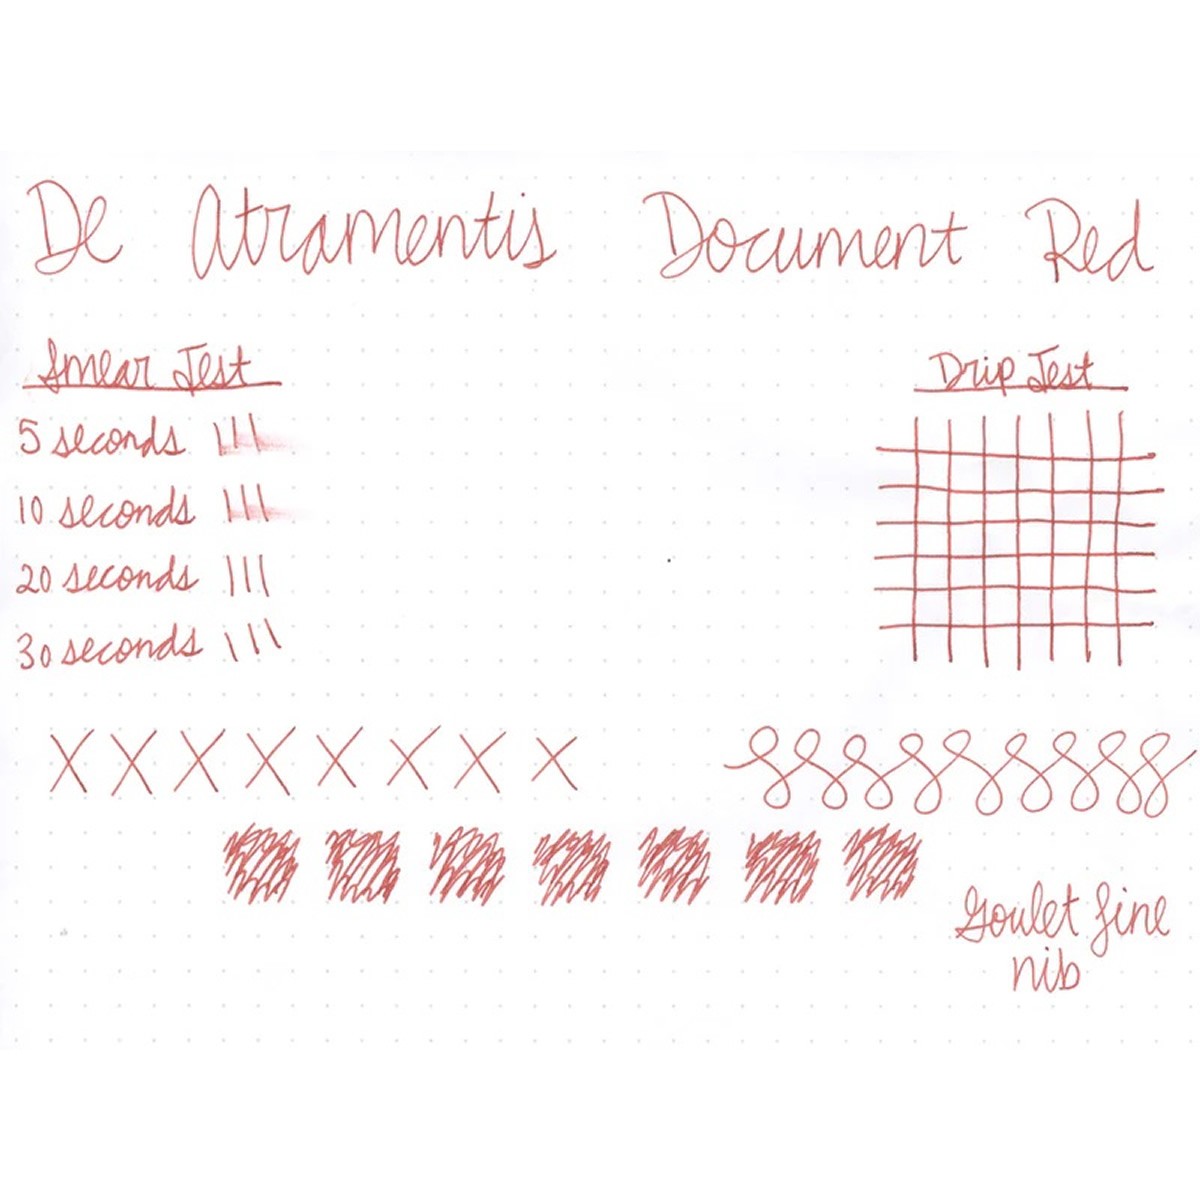 De Atramentis Document Red
Smear Test
5 seconds
10 seconds
20 seconds
30 seconds
Drip Test
X X X X X X X X
Goulet fine
nib